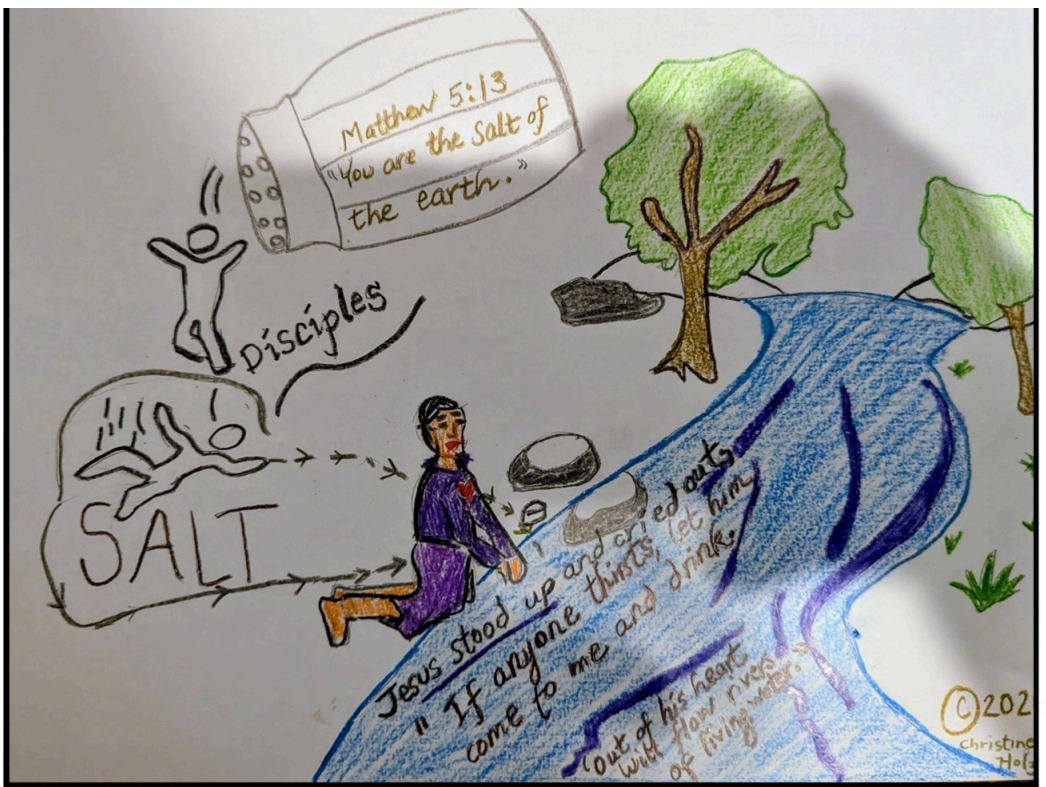 Matthew 5:13
"You are the Salt of
the earth."
Disciples
SALT
Jesus stood up and cried out,
"If anyone thirsts, let him
come to me and drink.
'Out of his heart
will flow rivers
of living water.'"
©202
Christine
Hol